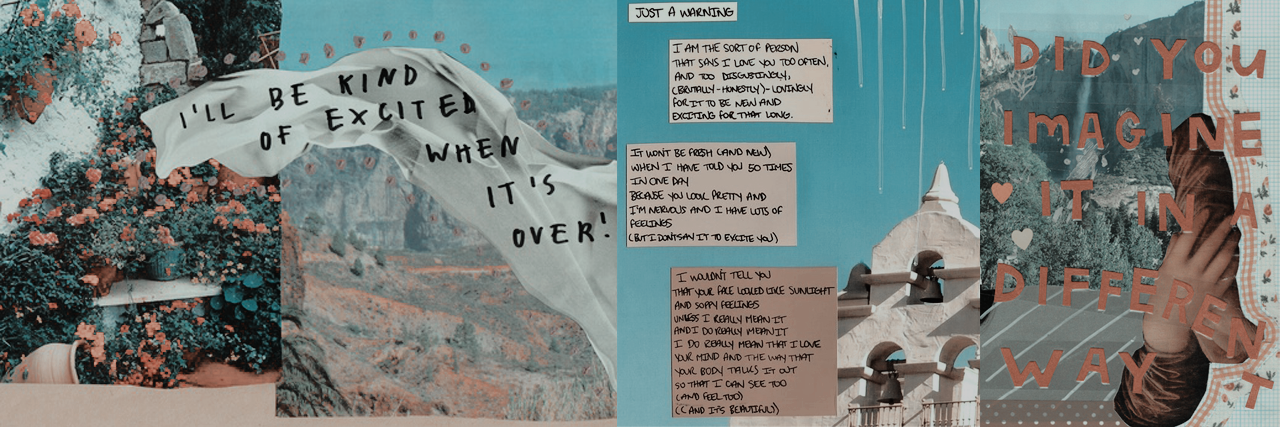 I'LL BE KIND
OF EXCITED
WHEN
IT'S
OVER!
JUST A WARNING
I AM THE SORT OF PERSON
THAT SAYS I LOVE YOU TOO OFTEN,
AND TOO DISGUSTINGLY,
(BRUTALLY-HONESTLY)-LOVINGLY
FOR IT TO BE NEW AND
EXCITING FOR THAT LONG.
IT WONT BE FRESH (AND NEW)
WHEN I HAVE TOLD YOU 50 TIMES
IN ONE DAY
BECAUSE YOU LOOK PRETTY AND
I'M NERVOUS AND I HAVE LOTS OF
FEELINGS
(BUT I DONT SAY IT TO EXCITE YOU)
I WOULDN'T TELL YOU
THAT YOUR FACE LOOKED LIKE SUNLIGHT
AND SOPPY FEELINGS
UNLESS I REALLY MEAN IT
AND I DO REALLY MEAN IT
I DO REALLY MEAN THAT I LOVE
YOUR MIND AND THE WAY THAT
YOUR BODY TALKS IT OUT
SO THAT I CAN SEE TOO
(AND FEEL TOO)
((AND IT'S BEAUTIFUL)
DID YOU
IMAGINE
IT IN A
DIFFERENT
WAY